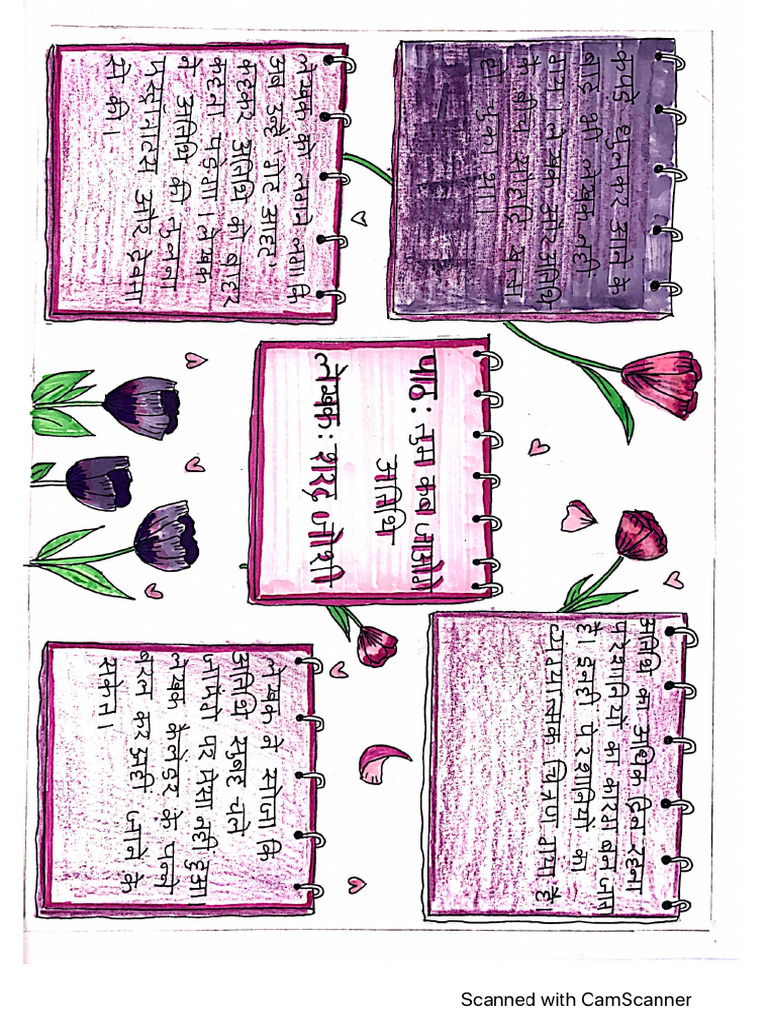 कपड़े धुलकर आने के
बाद भी लेखक नहीं
गया। लेखक और अतिथि
के बीच सौहार्द खत्म
हो चुका था।
अतिथि का अधिक दिन रहना
परेशानियों का कारण बन जाता
है। इनही परेशानियों का
व्यंग्यात्मक चित्रण गया है।
पाठ: तुम कब जाओगे
अतिथि
लेखक: शरद जोशी
लेखक को लगने लगा कि
अब उन्हें गेट आउट
कहकर अतिथि को बाहर
करना पड़ेगा। लेखक
ने अतिथि की तुलना
एस्ट्रोनॉट्स और देवता
से की।
लेखक ने सोचा कि
अतिथि सुबह चले
जाएंगे पर ऐसा नहीं हुआ।
लेखक कैलेंडर के पन्ने
बदल कर अतिथि जाने के
संकेत।
Scanned with CamScanner